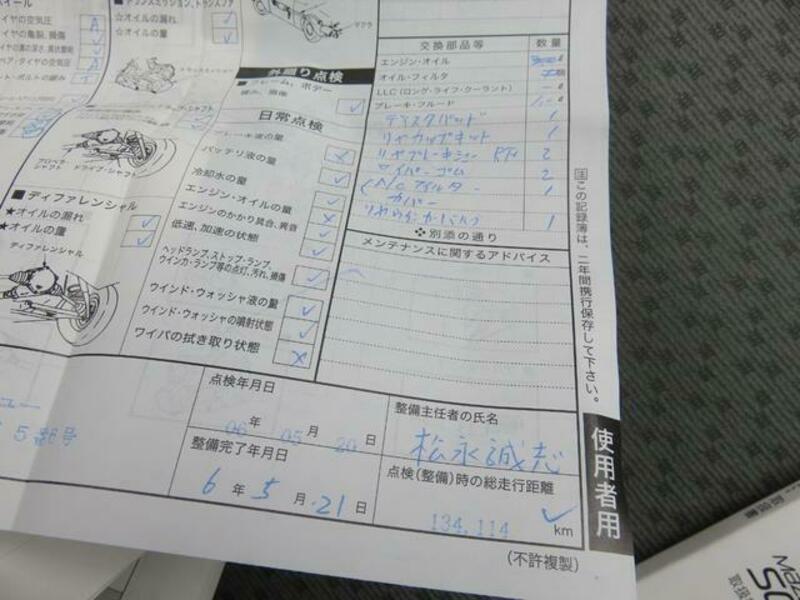 イヤの空気圧
イヤの亀裂、損傷
☆オイルの漏れ
☆オイルの量
マフラ
外廻り点検
フレーム、ボデー
日常点検
ブレーキ液の量
バッテリ液の量
冷却水の量
エンジン・オイルの量
エンジンのかかり具合、異音
低速、加速の状態
ヘッドランプ、ストップ・ランプ、
ウインカ・ランプ等の点灯、汚れ、損傷
ウインド・ウォッシャ液の量
ウインド・ウォッシャの噴射状態
ワイパの拭き取り状態
プロペラ・シャフト
ドライブ・シャフト
■ ディファレンシャル
★オイルの漏れ
★オイルの量
ディファレンシャル
交換部品等 数量
エンジン・オイル ℓ
オイル・フィルタ 個
LLC(ロング・ライフ・クーラント) ー ℓ
ブレーキ・フルード ℓ
ディスクパッド 1
リヤカップキット 1
2
ワイパーゴム 2
A/Cフィルター 1
カバー
1
❖別添の通り
メンテナンスに関するアドバイス
注この記録簿は、二年間携行保存して下さい。
5番6号
点検年月日
06年 05月 20日
整備完了年月日
6年 5月 21日
整備主任者の氏名
松永誠志
点検(整備)時の総走行距離
134,114 km
使用者用
(不許複製)
取扱書
Maz
取扱